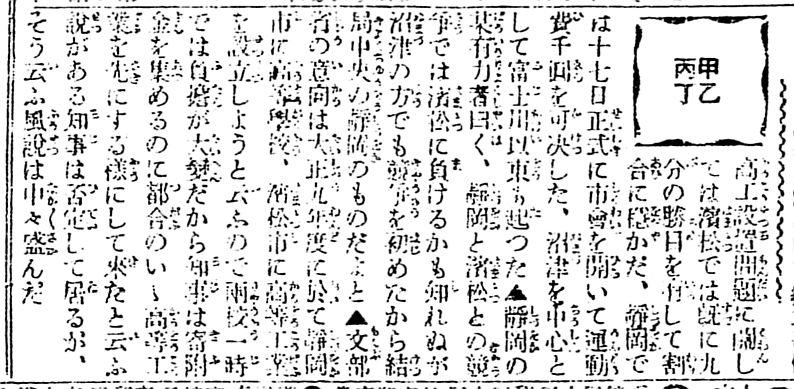 甲乙
丙丁
高工設置問題に關し
ては濱松では既に九
分の勝目を有して割
合に穩かだ、靜岡で
は十七日正式に市會を開いて運動
費千圓を可決した、沼津を中心と
して富士川以東も起つた▲靜岡の
某有力者曰く、靜岡と濱松との競
爭では濱松に負けるかも知れぬが
沼津の方でも競爭を初めたから結
局中央の靜岡のものだよと▲文部
省の意向は大正九年度に於て靜岡
市に高等學校、濱松市に高等工業
を設立しようと云ふので兩校一時
では負擔が大變だから知事は寄附
金を集めるのに都合のいゝ高等工
業を先にする樣にして來たと云ふ
說がある知事は否定して居るが、
そう云ふ風說は中々盛んだ